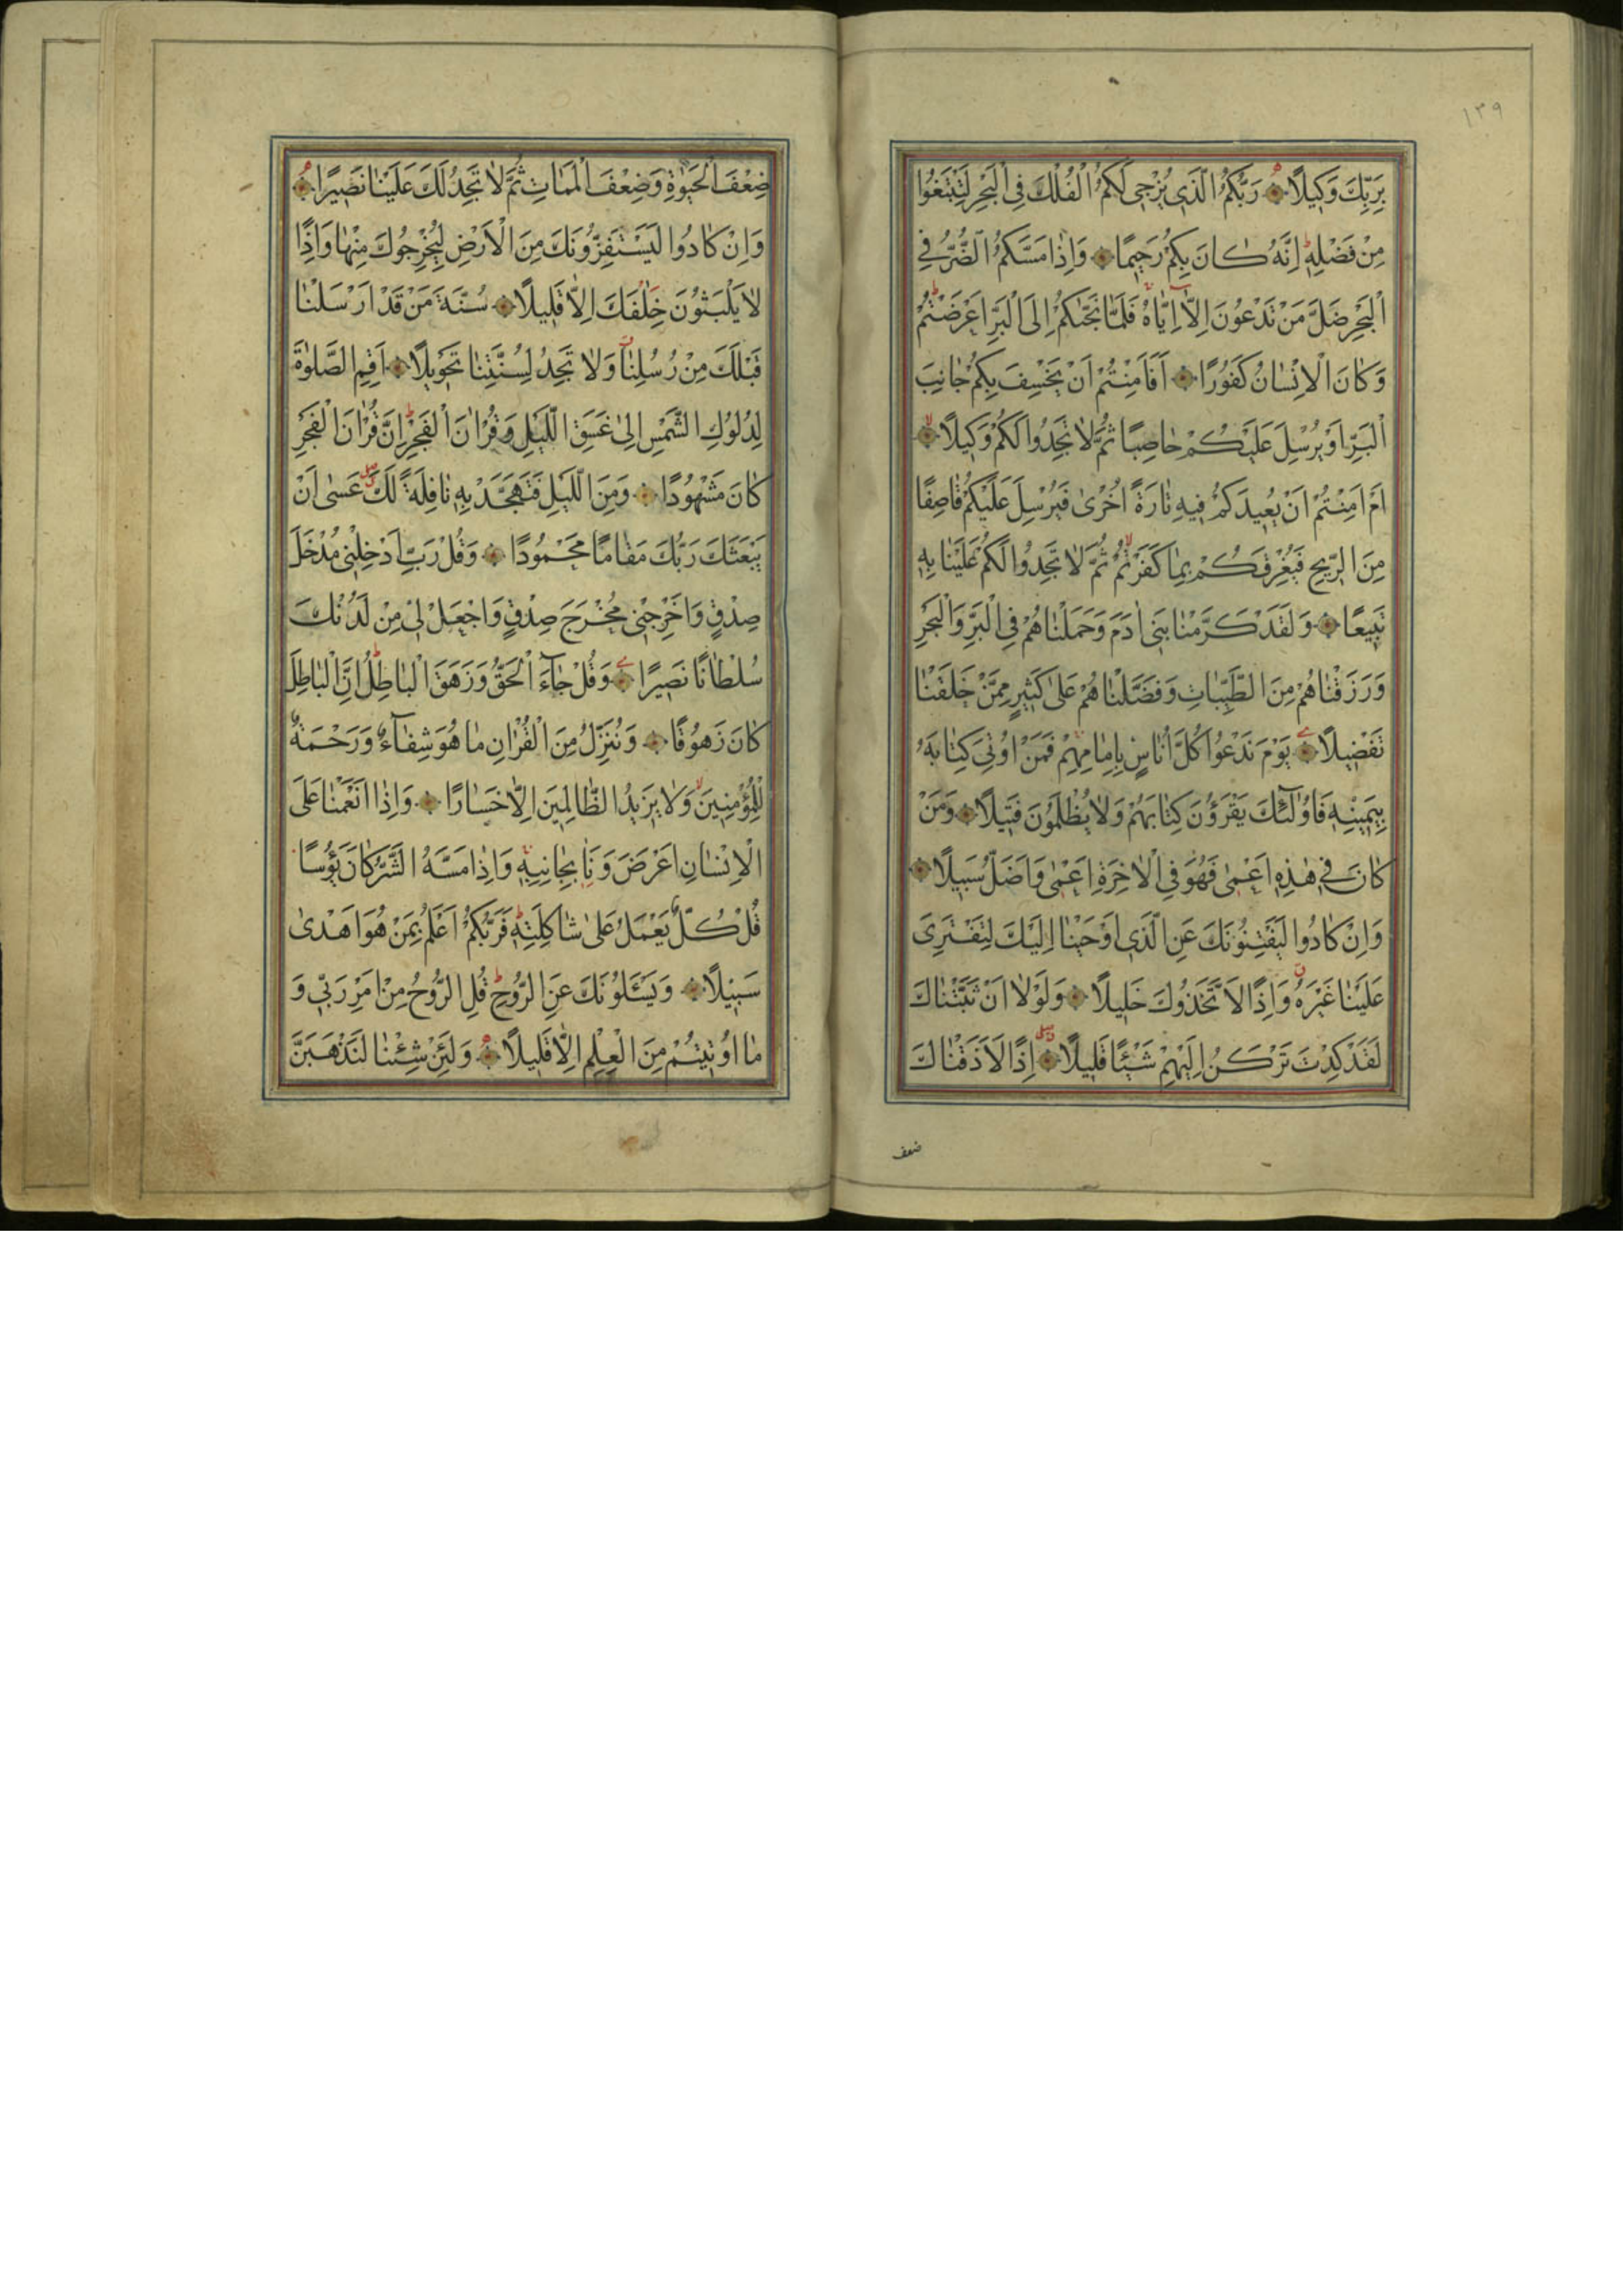 ١٣٩
بِرَبِّكَ وَكِيلًا رَبُّكُمُ الَّذِي يُزْجِي لَكُمُ الْفُلْكَ فِي الْبَحْرِ لِتَبْتَغُوا
مِنْ فَضْلِهِ اِنَّهُ كَانَ بِكُمْ رَحِيمًا وَاِذَا مَسَّكُمُ الضُّرُّ فِي
الْبَحْرِ ضَلَّ مَنْ تَدْعُونَ اِلَّا اِيَّاهُ فَلَمَّا نَجّٰىكُمْ اِلَى الْبَرِّ اَعْرَضْتُمْ
وَكَانَ الْاِنْسَانُ كَفُورًا اَفَاَمِنْتُمْ اَنْ يَخْسِفَ بِكُمْ جَانِبَ
الْبَرِّ اَوْ يُرْسِلَ عَلَيْكُمْ حَاصِبًا ثُمَّ لَا تَجِدُوا لَكُمْ وَكِيلًا
اَمْ اَمِنْتُمْ اَنْ يُعِيدَكُمْ فِيهِ تَارَةً اُخْرٰى فَيُرْسِلَ عَلَيْكُمْ قَاصِفًا
مِنَ الرِّيحِ فَيُغْرِقَكُمْ بِمَا كَفَرْتُمْ ثُمَّ لَا تَجِدُوا لَكُمْ عَلَيْنَا بِهِ
تَبِيعًا وَلَقَدْ كَرَّمْنَا بَنِي اٰدَمَ وَحَمَلْنَاهُمْ فِي الْبَرِّ وَالْبَحْرِ
وَرَزَقْنَاهُمْ مِنَ الطَّيِّبَاتِ وَفَضَّلْنَاهُمْ عَلٰى كَثِيرٍ مِمَّنْ خَلَقْنَا
تَفْضِيلًا يَوْمَ نَدْعُوا كُلَّ اُنَاسٍ بِاِمَامِهِمْ فَمَنْ اُوتِيَ كِتَابَهُ
بِيَمِينِهِ فَاُولٰٓئِكَ يَقْرَؤُنَ كِتَابَهُمْ وَلَا يُظْلَمُونَ فَتِيلًا وَمَنْ
كَانَ فِي هٰذِهِ اَعْمٰى فَهُوَ فِي الْاٰخِرَةِ اَعْمٰى وَاَضَلُّ سَبِيلًا
وَاِنْ كَادُوا لَيَفْتِنُونَكَ عَنِ الَّذِي اَوْحَيْنَا اِلَيْكَ لِتَفْتَرِيَ
عَلَيْنَا غَيْرَهُ وَاِذًا لَاتَّخَذُوكَ خَلِيلًا وَلَوْلَا اَنْ ثَبَّتْنَاكَ
لَقَدْ كِدْتَ تَرْكَنُ اِلَيْهِمْ شَيْئًا قَلِيلًا اِذًا لَاَذَقْنَاكَ
ضعف
ضِعْفَ الْحَيٰوةِ وَضِعْفَ الْمَمَاتِ ثُمَّ لَا تَجِدُ لَكَ عَلَيْنَا نَصِيرًا
وَاِنْ كَادُوا لَيَسْتَفِزُّونَكَ مِنَ الْاَرْضِ لِيُخْرِجُوكَ مِنْهَا وَاِذًا
لَا يَلْبَثُونَ خِلَافَكَ اِلَّا قَلِيلًا سُنَّةَ مَنْ قَدْ اَرْسَلْنَا
قَبْلَكَ مِنْ رُسُلِنَا وَلَا تَجِدُ لِسُنَّتِنَا تَحْوِيلًا اَقِمِ الصَّلٰوةَ
لِدُلُوكِ الشَّمْسِ اِلٰى غَسَقِ اللَّيْلِ وَقُرْاٰنَ الْفَجْرِ اِنَّ قُرْاٰنَ الْفَجْرِ
كَانَ مَشْهُودًا وَمِنَ اللَّيْلِ فَتَهَجَّدْ بِهِ نَافِلَةً لَكَ عَسٰى اَنْ
يَبْعَثَكَ رَبُّكَ مَقَامًا مَحْمُودًا وَقُلْ رَبِّ اَدْخِلْنِي مُدْخَلَ
صِدْقٍ وَاَخْرِجْنِي مُخْرَجَ صِدْقٍ وَاجْعَلْ لِي مِنْ لَدُنْكَ
سُلْطَانًا نَصِيرًا وَقُلْ جَآءَ الْحَقُّ وَزَهَقَ الْبَاطِلُ اِنَّ الْبَاطِلَ
كَانَ زَهُوقًا وَنُنَزِّلُ مِنَ الْقُرْاٰنِ مَا هُوَ شِفَآءٌ وَرَحْمَةٌ
لِلْمُؤْمِنِينَ وَلَا يَزِيدُ الظَّالِمِينَ اِلَّا خَسَارًا وَاِذَا اَنْعَمْنَا عَلَى
الْاِنْسَانِ اَعْرَضَ وَنَاٰ بِجَانِبِهِ وَاِذَا مَسَّهُ الشَّرُّ كَانَ يَؤُسًا
قُلْ كُلٌّ يَعْمَلُ عَلٰى شَاكِلَتِهِ فَرَبُّكُمْ اَعْلَمُ بِمَنْ هُوَ اَهْدٰى
سَبِيلًا وَيَسْئَلُونَكَ عَنِ الرُّوحِ قُلِ الرُّوحُ مِنْ اَمْرِ رَبِّي وَ
مَا اُوتِيتُمْ مِنَ الْعِلْمِ اِلَّا قَلِيلًا وَلَئِنْ شِئْنَا لَنَذْهَبَنَّ